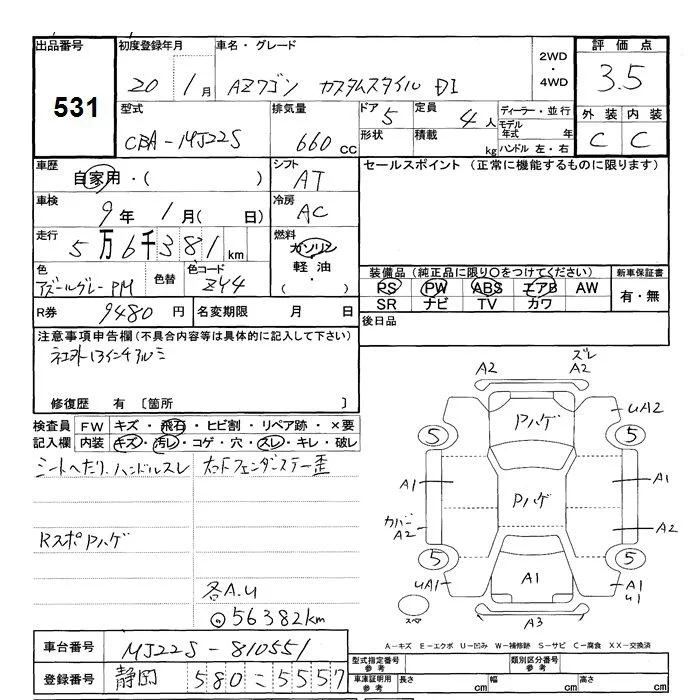 出品番号 初度登録年月 車名・グレード 2WD・4WD 評価点
531 20 1月 AZワゴン カスタムスタイル DI 3.5
型式 排気量 ドア 5 定員 4人 ディーラー・並行 外装 内装
CBA-MJ22S 660cc 形状 積載 kg モデル年式 年 ハンドル 左・右 C C
車歴 シフト セールスポイント (正常に機能するものに限ります)
自家用・( ) AT
車検 冷房
9年 1月( 日) AC
走行 燃料
5万6千381km ガソリン
色 色替 色コード 軽油・
アズールグレーPM ZY4 ( )
装備品 (純正品に限り○をつけてください) 新車保証書
PS PW ABS エアB AW 有・無
SR ナビ TV カワ
R券 9480円 名変期限 月 日 後日品
注意事項申告欄(不具合内容等は具体的に記入して下さい)
社外13インチアルミ
修復歴 有 〔箇所 〕
検査員 FW キズ・飛石・ヒビ割・リペア跡・×要
記入欄 内装 キズ・汚レ・コゲ・穴・スレ・キレ・破レ
シートへたり、ハンドルスレ 右Fフェンダーステー歪
RスポPハゲ
各A.U
56382km
A2 ズレ A2
Pハゲ UA2
5 5
A1 Pハゲ A1
カバーA2 A2
5 5
UA1 A1 A1 U1
スペ A3
A-キズ E-エクボ U-凹み W-補修跡 S-サビ C-腐食 XX-交換済
車台番号 MJ22S-810551 型式指定番号 参考 類別区分番号 参考
登録番号 静岡 580 = 5557 車庫証明用 参考 長さ cm 幅 cm 高さ cm